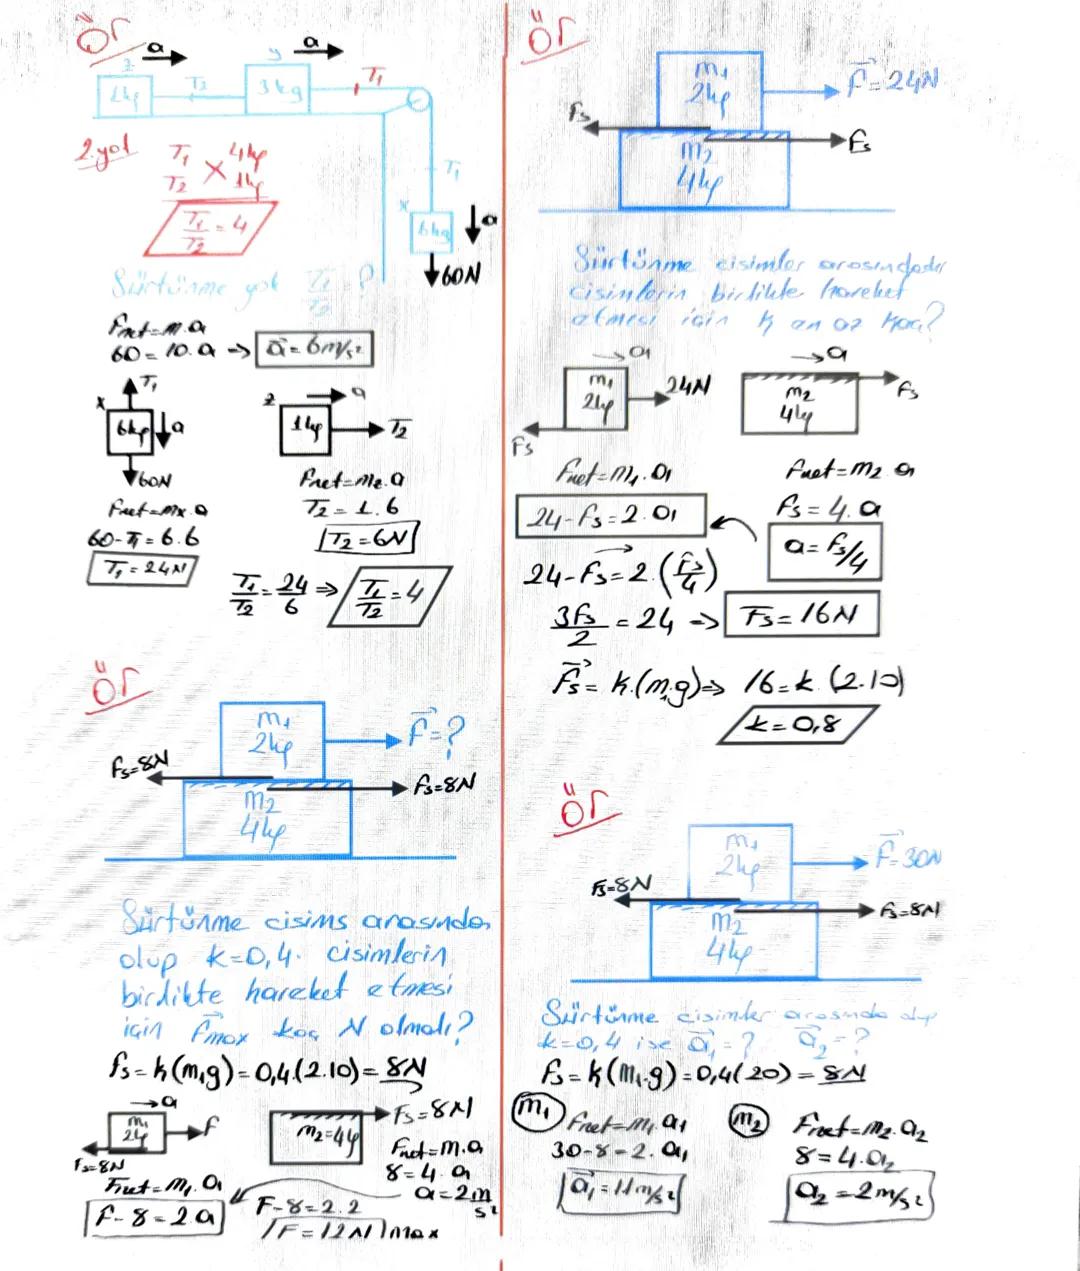 Ör
a
a
z
y
1kg
T₂
3kg
T₁
2.yol
T₁ 4kg
T₂ 1kg
T₁/T₂ = 4
T₁
x
6kg
a
60N
Sürtünme yok T₁/T₂ = ?
Fnet=m.a
60=10.a => a=6m/s²
T₁
x
6kg
a
60N
Fnet=mx.a
60-T₁=6.6
T₁=24N
z
a
1kg
T₂
Fnet=mz.a
T₂=1.6
T₂=6N
T₁/T₂=24/6 => T₁/T₂=4
Ör
m₁
2kg
F=?
Fs=8N
fs=8N
m₂
4kg
Sürtünme cisims arasında
olup k=0,4. cisimlerin
birdikte hareket etmesi
için Fmax kaç N olmalı?
fs=k(m₁g)=0,4(2.10)=8N
a
m₁
2kg
f
Fs=8N
Fnet=m₁.a
F-8=2.a
m₂=4kg
Fs=8N
Fnet=m.a
8=4.a
a=2m/s²
F-8=2.2
F=12N max
Ör
m₁
2kg
F=24N
Fs
Fs
m₂
4kg
Sürtünme cisimler arasındadır
cisimlerin birlikte hareket
etmesi için k en az kaç?
a
m₁
2kg
24N
Fs
a
m₂
4kg
Fs
Fnet=m₁.a
24-Fs=2.a
Fnet=m₂.a
Fs=4.a
a=Fs/4
24-Fs=2.(Fs/4)
3Fs/2=24 => Fs=16N
Fs=k.(m₁g)=> 16=k.(2.10)
k=0,8
Ör
m₁
2kg
F=30N
Fs=8N
Fs=8N
m₂
4kg
Sürtünme cisimler arasında olup
k=0,4 ise a₁=? a₂=?
fs=k(m₁.g)=0,4(20)=8N
m₁
Fnet=m₁.a₁
30-8=2.a₁
a₁=11m/s²
m₂
Fnet=m₂.a₂
8=4.a₂
a₂=2m/s²